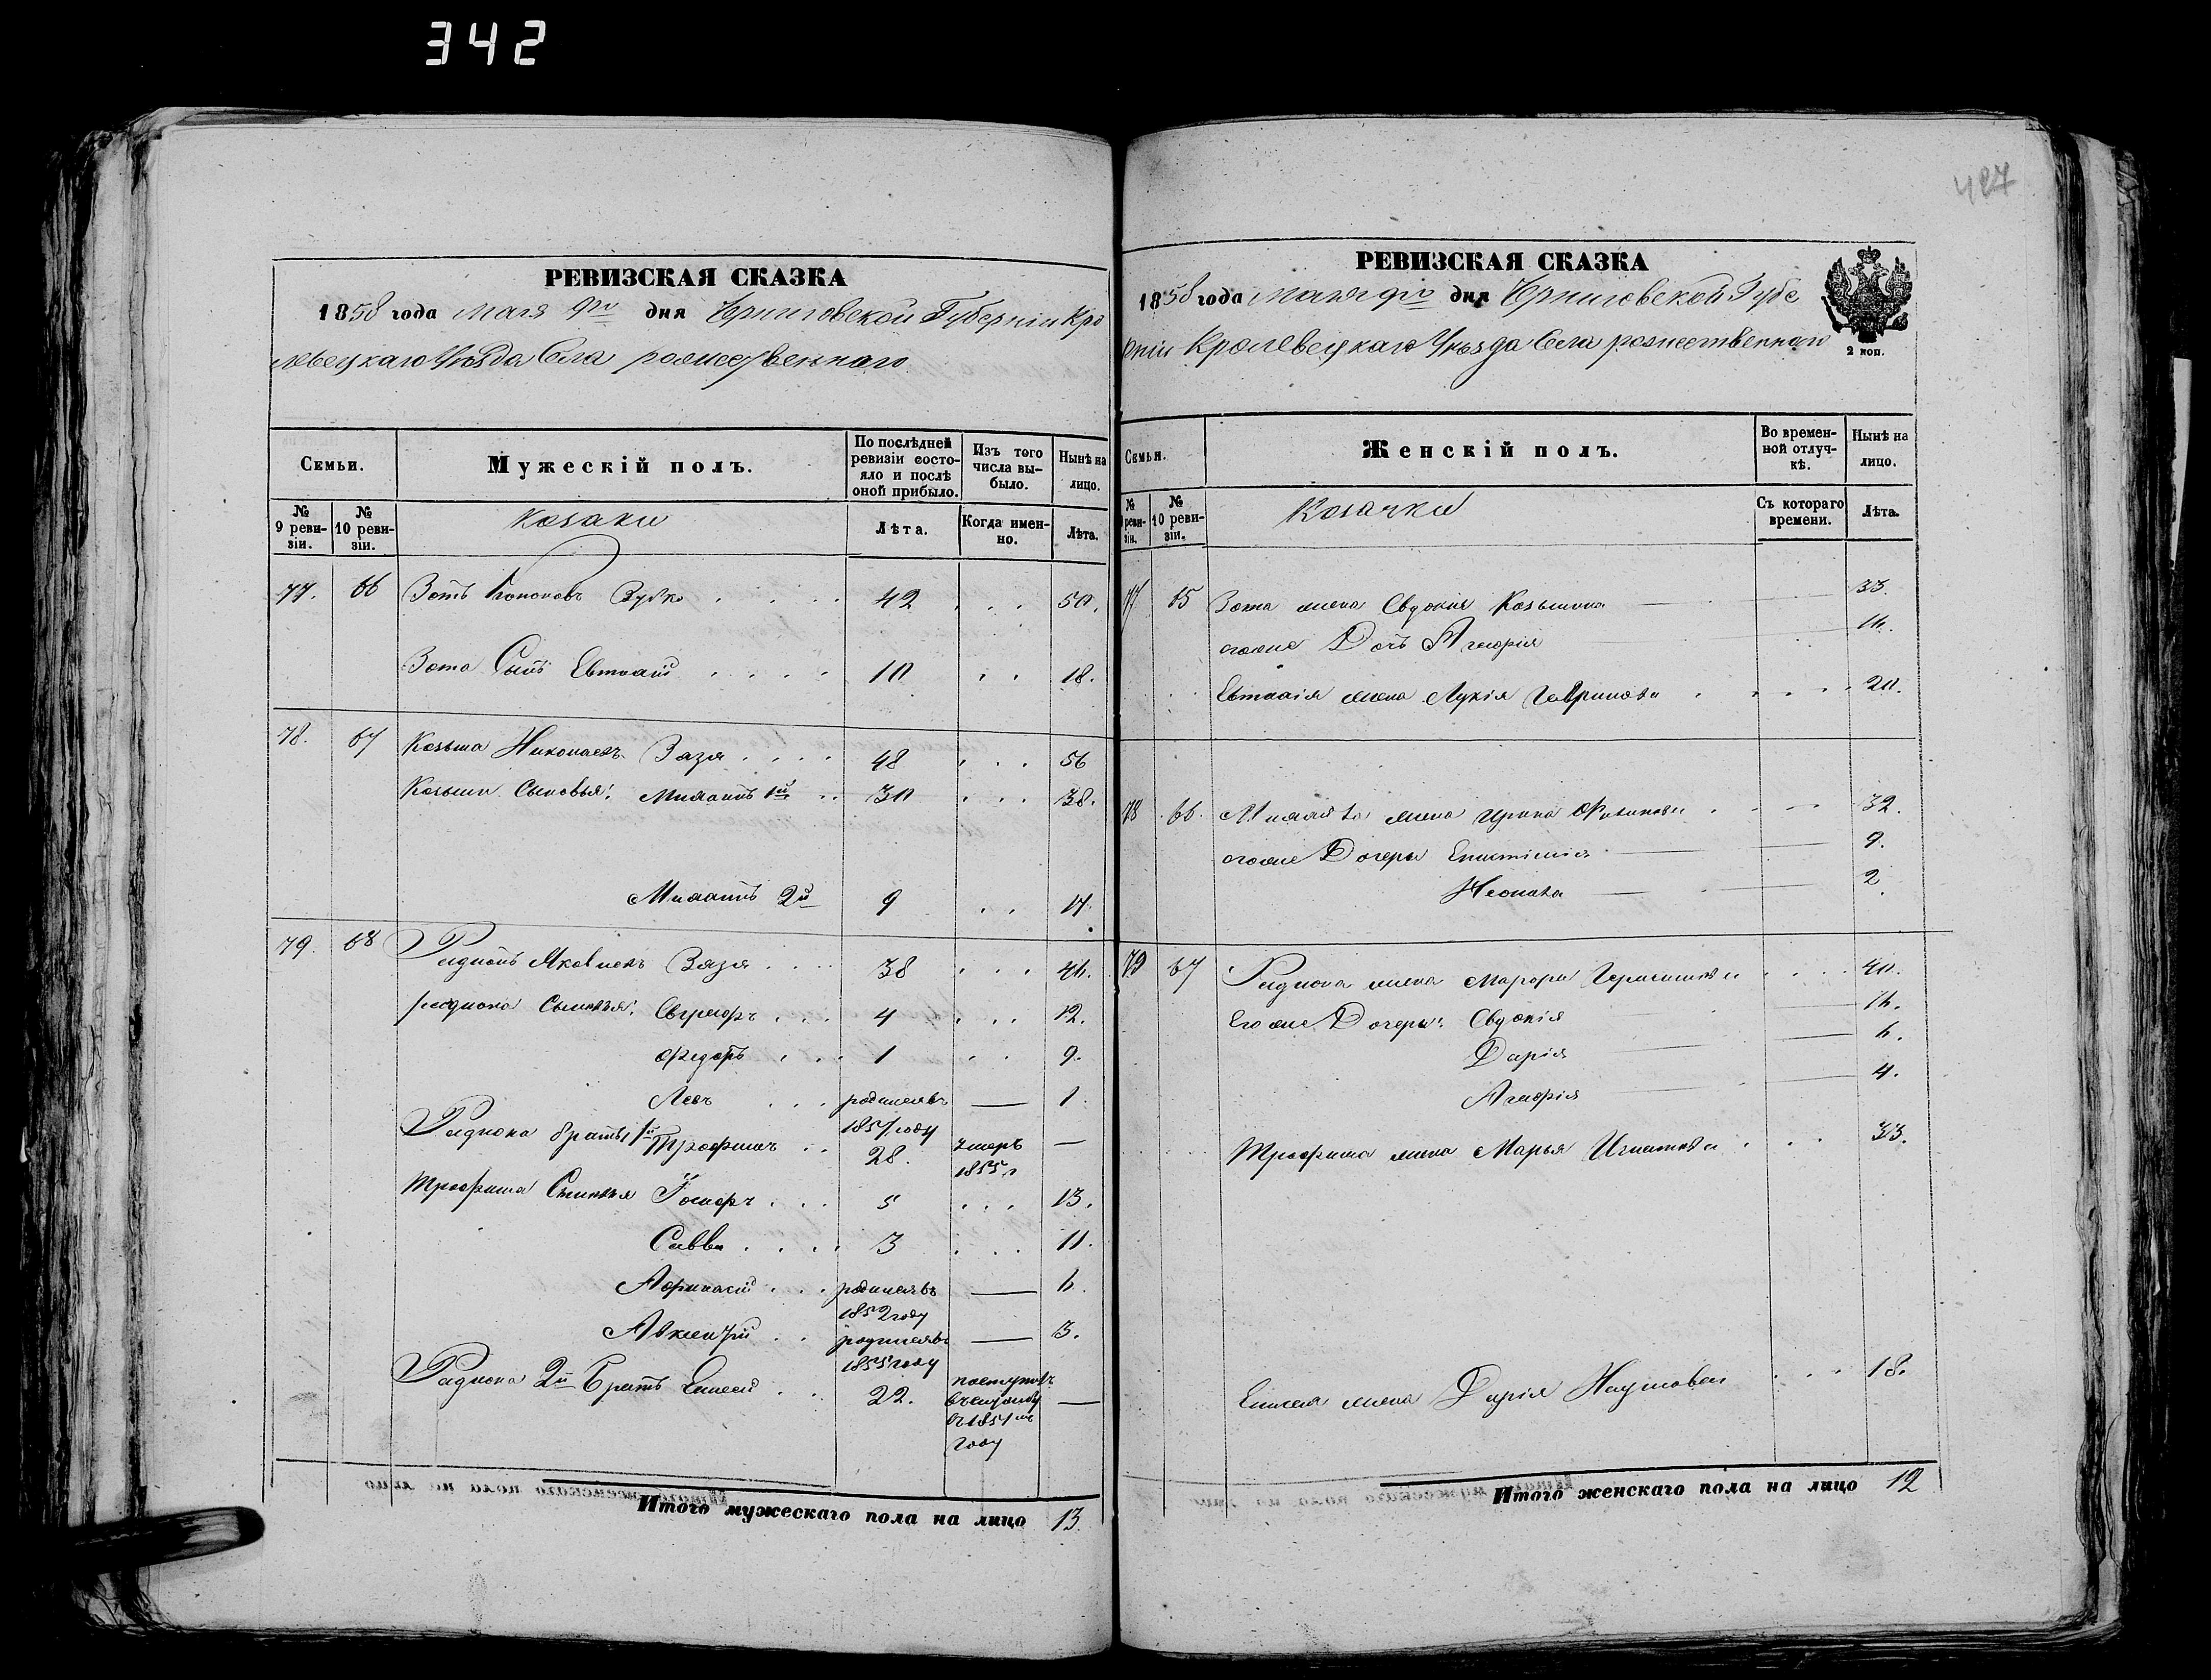 342
427
РЕВИЗСКАЯ СКАЗКА
1858 года Мая 9го дня Черниговской Губерніи Кро
левецкаго Уѣзда Села рожественнаго
Семьи.
Мужескій полъ.
По послѣдней ревизіи состояло и послѣ оной прибыло.
Изъ того числа выбыло.
Нынѣ на лицо.
№ 9 ревизіи.
№ 10 ревизіи.
козаки
Лѣта.
Когда именно.
Лѣта.
77. 66 Зотъ Кононовъ Зубко . . . . 42 . . . 50.
Зота Сынъ Евтихій . . . . 10 . . 18.
78. 67 Козьма Николаевъ Зазя . . . . 48 . . . 56
Козьмы Сыновья: 1й . . 30 . . . 38.
2й 9 . . 17.
79. 68 Радионъ Яковлевъ Зазя . . . . 38 . . . 46.
радиона Сыновья: . . . 4 . . . 12.
Федоръ . . . 1 . . 9.
Левъ . . . родился въ — 1.
1857 году
Радиона братъ 1й Трофимъ . . 28. умеръ —
1855 г
Трофима Сыновья . . . 5 . . . 13.
Савва . . . . 3 . . . 11.
Афанасій . . . родился въ — 6.
1852 году
Авксентій . . родился въ — 3.
1855 году
Радиона 2й Братъ Елисей . . 22. поступилъ
—
въ 1851мъ
году
Итого мужескаго пола на лицо 13.
РЕВИЗСКАЯ СКАЗКА
1858 года Мая 9го дня Черниговской Губе
рніи Кролевецкаго Уѣзда Села рожественнаго
2 коп.
Семьи.
Женскій полъ.
Во временной отлучкѣ.
Нынѣ на лицо.
№ 9 ревизіи.
№ 10 ревизіи.
Козачки
Съ котораго времени.
Лѣта.
77 65 Зота жена Евдокия Козьмина — — 33.
егоже Дочь Агафія — 16.
Евтихія жена Лукія Гаврилова . . . . . 20.
78 66. жена Ирина . . . — 32.
егоже Дочеры Епистимія — 9.
— 2
79 67 Радиона жена Марфа Герасимова . . . . 40.
Его же Дочеры: Евдокія — 16.
Дарія — 6.
Агафія — 4.
Трофима жена Марья Игнатова . . . 33.
Елисея жена Дарія Наумова . . . 18.
Итого женскаго пола на лицо 12